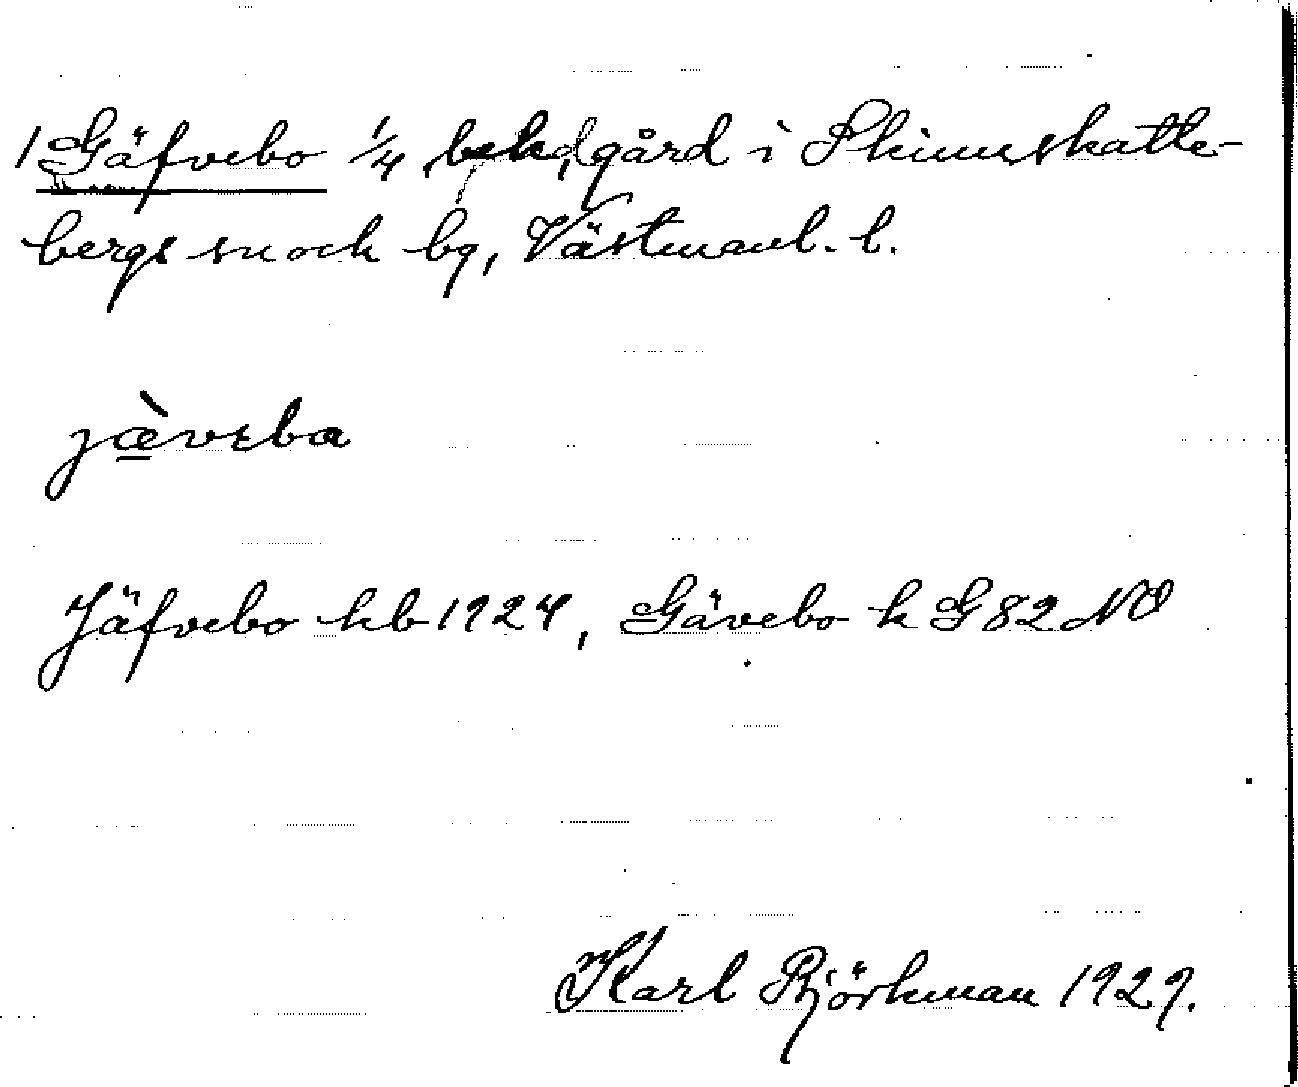 1 Gäfvebo 1/4 gård i Skinnskatte-
bergs sn och bg, Västmanl. l.
jæ̀vɛba
Jäfvebo kb 1924, Gävebo k G 82 NO
Karl Björkman 1929.